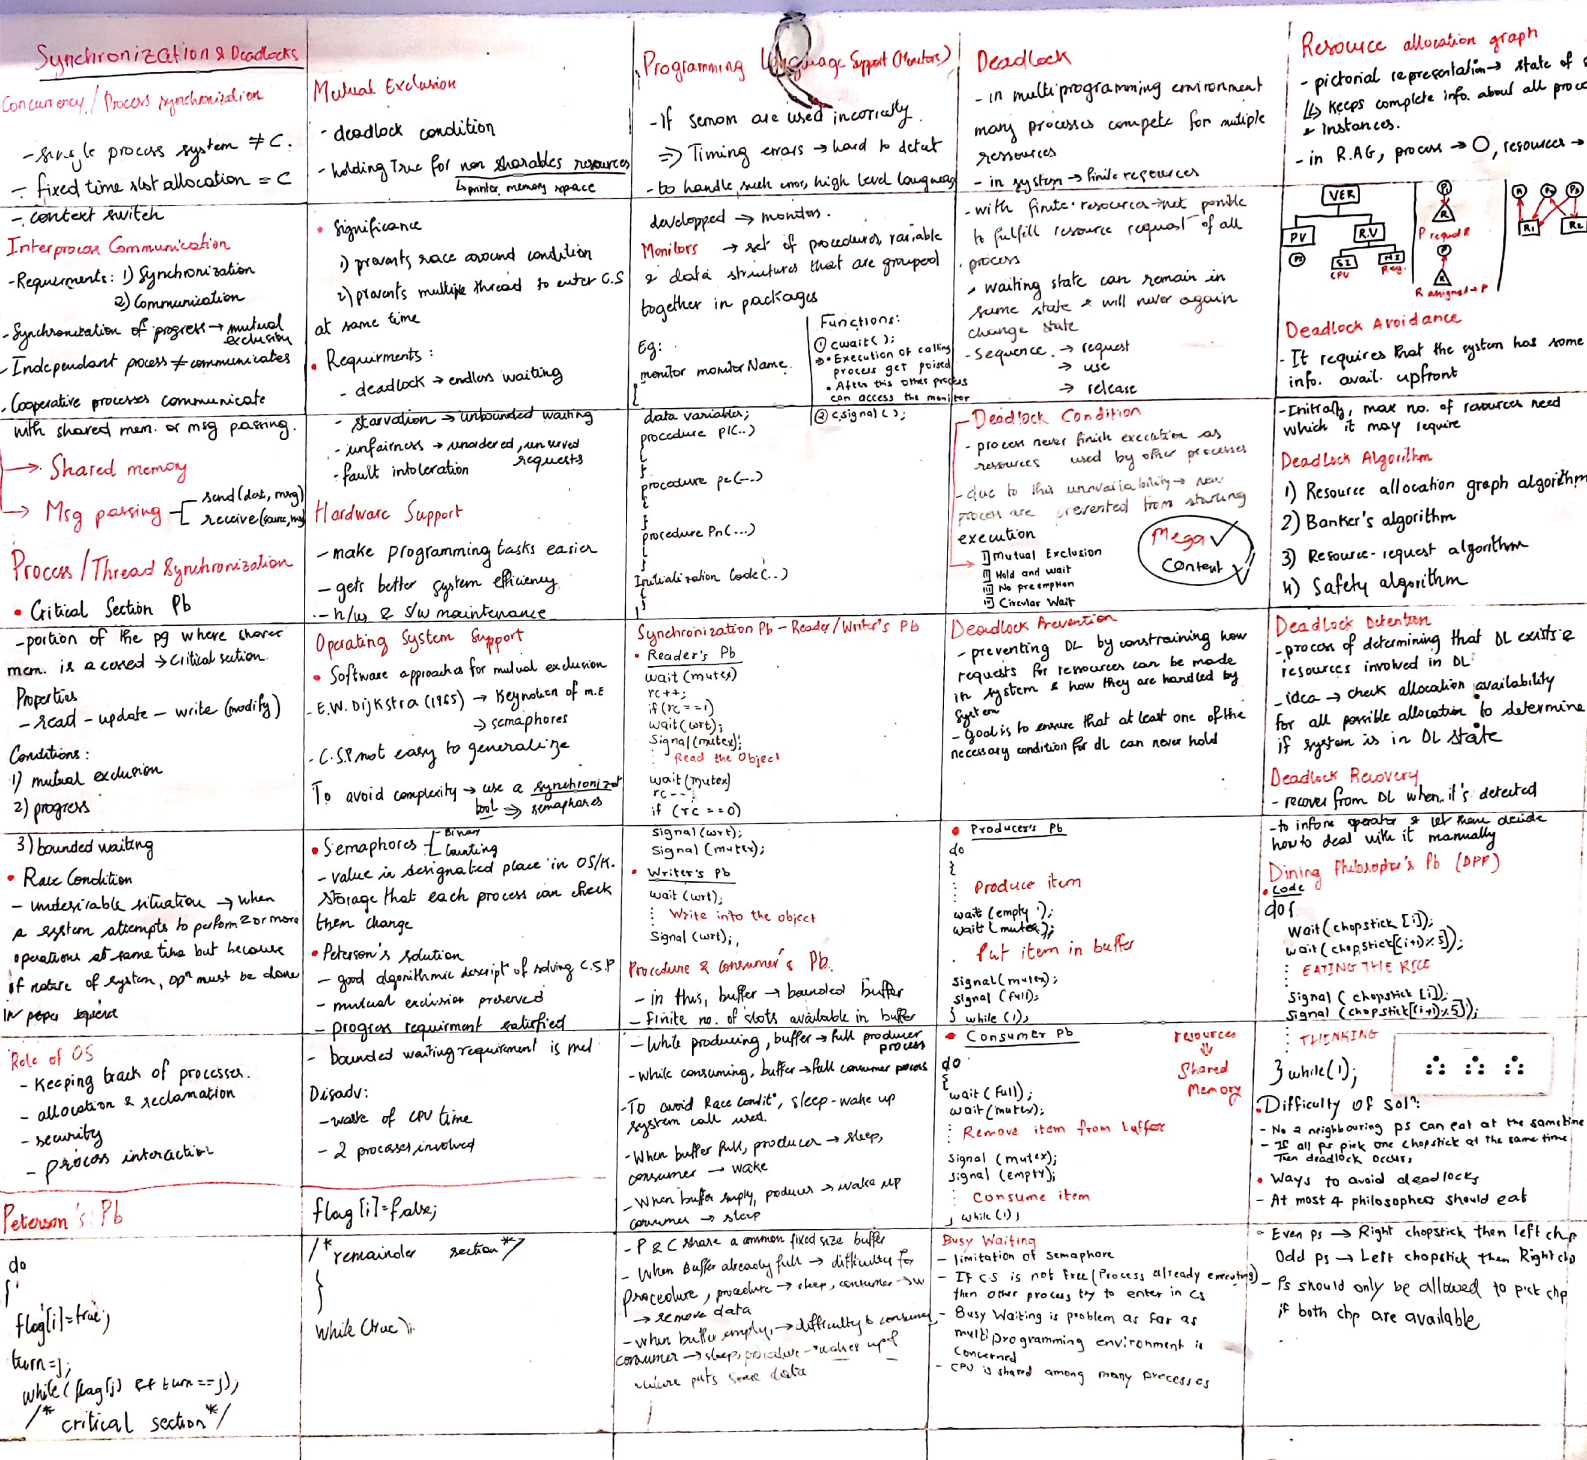 Synchronization & Deadlocks
Concurrency / Process synchronization
- single process system ≠ C.
- fixed time slot allocation = C
- context switch
Interprocess Communication
- Requirments: 1) Synchronization
2) Communication
- Synchronization of progress → mutual
exclusion
- Independant process ≠ communicates
- Cooperative processes communicate
with shared mem. or msg passing.
→ Shared memory
→ Msg passing - send (dest, msg)
receive (source, msg)
Process / Thread Synchronization
• Critical Section Pb
- portion of the pg where sharer
mem. is accessed → critical section.
Properties
- read - update - write (modify)
Conditions:
1) mutual exclusion
2) progress
3) bounded waiting
• Race Condition
- undesirable situation → when
a system attempts to perform 2 or more
operations at same time but because
of nature of system, opⁿ must be done
in proper sequence
Role of OS
- Keeping track of processes.
- allocation & reclamation
- security
- process interaction
Peterson's Pb
do
{
flag[i]=true;
turn=j;
while (flag[j] && turn==j);
/* critical section */
Mutual Exclusion
- deadlock condition
- holding True for non sharables resources
↳ printer, memory space
• Significance
1) prevents race around condition
2) prevents multiple thread to enter C.S
at same time
• Requirments:
- deadlock → endless waiting
- starvation → unbounded waiting
- unfairness → unordered, unserved
requests
- fault intoleration
Hardware Support
- make programming tasks easier
- gets better system efficiency
- h/w & s/w maintenance
Operating System Support
• Software approaches for mutual exclusion
- E.W. Dijkstra (1965) → Keynotion of m.E
→ semaphores
- C.S.P not easy to generalize
To avoid complexity → use a synchronizat
tool ⇒ semaphores
• Semaphores - Binary
Counting
- value in designated place in OS/K.
storage that each process can check
then change
• Peterson's solution
- good algorithmic descript of solving C.S.P
- mutual exclusion preserved
- progress requirment satisfied
- bounded waiting requirement is met
Disadv:
- waste of CPU time
- 2 processes involved
flag[i]=false;
/* remainder section */
}
}
while (true);
Programming Language Support (Monitors)
- If semom are used incorrectly.
⇒ Timing errors → hard to detect
- to handle such error, high level language
developped → monitors.
Monitors → set of procedures, variable
& data structures that are grouped
together in packages
Eg:
monitor monitorName.
{
data variables;
procedure p1(..)
{
}
procedure p2(...)
{
}
procedure Pn(...)
{
}
Initialization code(..)
{
}
Functions:
① cwait();
→ • Execution of calling
process get poised
• After this other process
can access the monitor
② c.signal();
Synchronization Pb - Reader/Writer's Pb
• Reader's Pb
wait (mutex)
rc++;
if (rc==1)
wait (wrt);
Signal (mutex);
Read the Object
wait (mutex)
rc--;
if (rc ==0)
Signal (wrt);
Signal (mutex);
• Writer's Pb
wait (wrt);
Write into the object
Signal (wrt);
Procedure & consumer's Pb.
- in this, buffer → bounded buffer
- finite no. of slots available in buffer
- While producing, buffer → full producer
process
- while consuming, buffer → full consumer process
- To avoid Race condit°, sleep-wake up
system call used.
- When buffer full, producer → sleep,
consumer → wake
- When buffer empty, producer → wake up
consumer → sleep
- P & C share a common fixed size buffer
- When Buffer already full → difficulty for
procedure, procedure → sleep, consumer → w
→ remove data
- when buffer empty, → difficulty to consumer,
consumer → sleep, procedure → wakes up &
puts some data
Deadlock
- in multiprogramming environment
many processes compete for mutiple
ressources
- in system → finite resources
- with finite resources → not possible
to fulfill resource request of all
process
- waiting state can remain in
same state & will never again
change state
- Sequence → request
→ use
→ release
Deadlock Condition
- process never finish execution as
resources used by other processes
- due to this unavailability → new
process are prevented from starting
execution
I] Mutual Exclusion
II] Hold and wait
III] No preemption
IV] Circular Wait
Mega ✓
Content ✓
Deadlock Prevention
- preventing DL by constraining how
requests for ressources can be made
in system & how they are handled by
system
- goal is to ensure that at least one of the
necessary condition for dl can never hold
• Producer's Pb
do
{
Produce item
wait (empty);
wait (mutex);
Put item in buffer
signal (mutex);
signal (full);
} while (1);
• Consumer Pb
do
{
wait (full);
wait (mutex);
Remove item from buffer
signal (mutex);
signal (empty);
Consume item
} while (1);
resources
⇓
Shared
Memory
Busy Waiting
- limitation of semaphore
- If C.S is not free (Process already executing)
then other process try to enter in CS
- Busy Waiting is problem as far as
multiprogramming environment is
concerned
- CPU is shared among many processes
Resource allocation graph
- pictorial representation → state of s
↳ keeps complete info. about all proce
& instances.
- in R.AG, process → O, resources →
VER
PV
R.V
P
SI
CPU
MI
Reg.
P
R
P request R
P
R
R assigned → P
P1
P2
P3
R1
R2
Deadlock Avoidance
- It requires that the system has some
info. avail. upfront
- Initially, max no. of resources need
which it may require
DeadLock Algorithm
1) Resource allocation graph algorithm
2) Banker's algorithm
3) Resource-request algorithm
4) Safety algorithm
DeadLock Detention
- process of determining that DL exists &
resources involved in DL
- idea → check allocation availability
for all possible allocation to determine
if system is in DL state
Deadlock Recovery
- recover from DL when it's detected
- to inform operator & let them decide
how to deal with it manually
Dining Philosopher's Pb (DPP)
• Code
do {
Wait (chopstick [i]);
wait (chopstick[(i+1)%5]);
EATING THE RICE
Signal (chopstick [i]);
Signal (chopstick[(i+1)%5]);
THINKING
} while(1);
• Difficulty of solⁿ:
- No 2 neighbouring ps can eat at the same time
- If all ps pick one chopstick at the same time
Then deadlock occurs
• Ways to avoid deadlocks
- At most 4 philosophers should eat
- Even ps → Right chopstick then left chp
Odd ps → Left chopstick then Right chp
- Ps should only be allowed to pick chp
if both chp are available